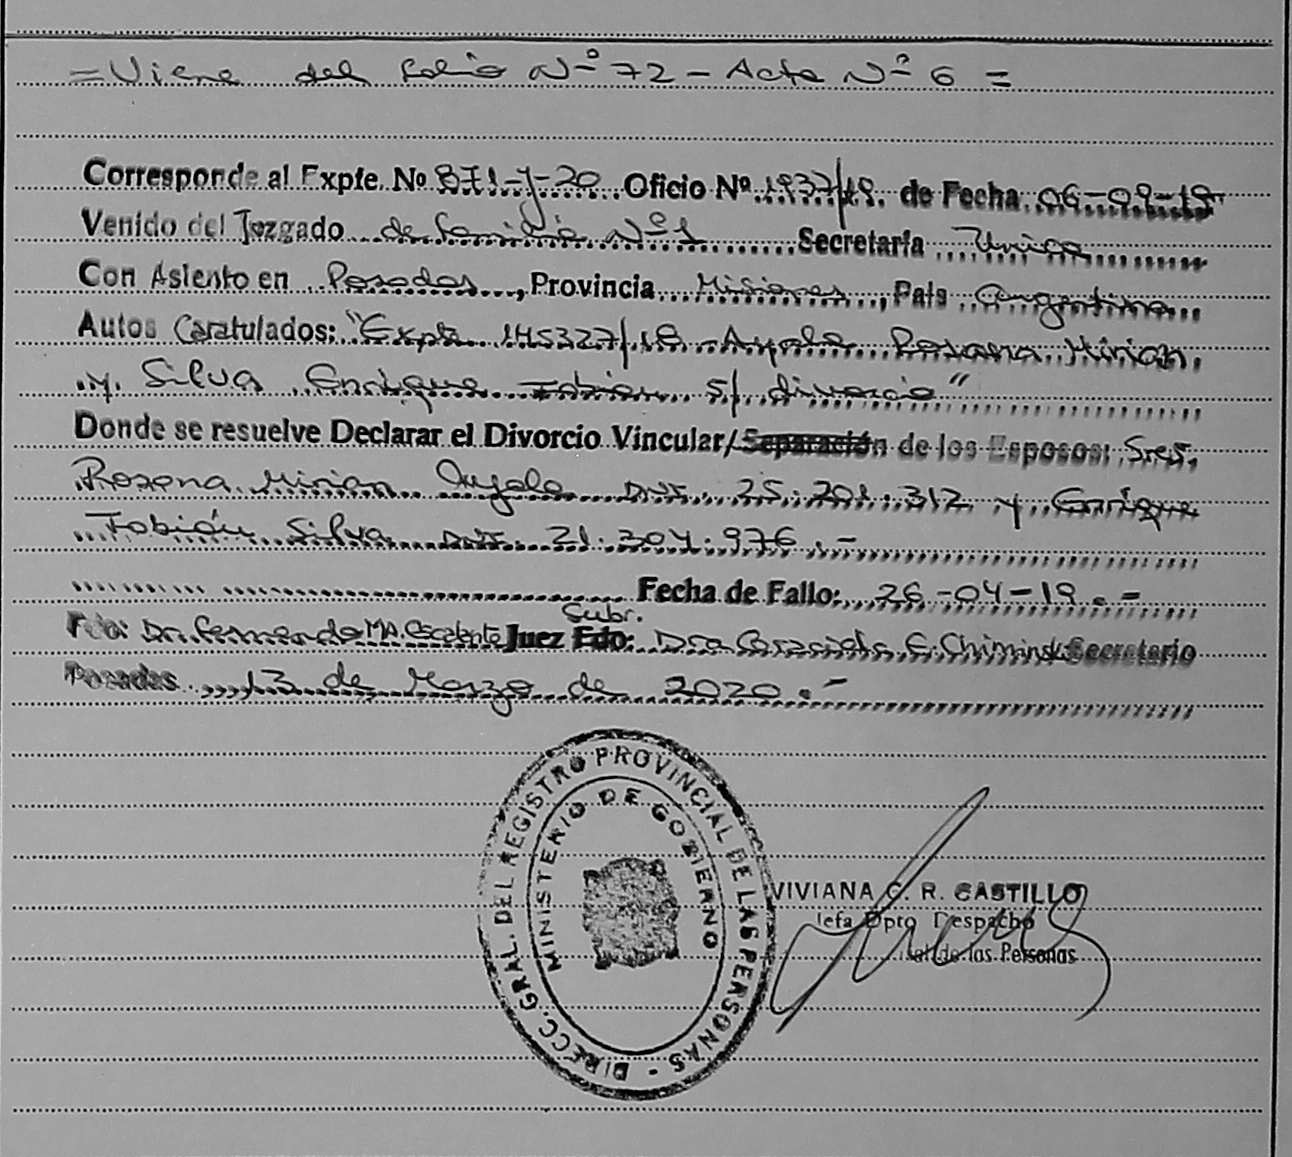 = Viene del folio Nº 72 - Acta Nº 6 =
Corresponde al Expte. Nº 871-y-20 Oficio Nº 1937/19 de Fecha 06-09-19
Venido del Juzgado de Familia Nº 1 Secretaría Unica
Con Asiento en Posadas, Provincia Misiones, País Argentina
Autos Caratulados: "Expte 145327/18 Ayala Roxana Mirian
y Silva Enrique Fabian s/ divorcio"
Donde se resuelve Declarar el Divorcio Vincular/Separación de los Esposos: Sres.
Roxana Mirian Ayala DNI. 25.201.312 y Enrique
Fabián Silva DNI. 21.304.976.-
Fecha de Fallo: 26-04-19.-
Subr.
Fdo: Dr. Fernando MA. Escalante Juez Fdo: Dra Graciela E. Chiminski Secretario
Posadas 13 de Marzo de 2020.-
DIRECC. GRAL. DEL REGISTRO PROVINCIAL DE LAS PERSONAS -
MINISTERIO DE GOBIERNO
VIVIANA C. R. CASTILLO
Jefa Dpto Despacho
de las Personas